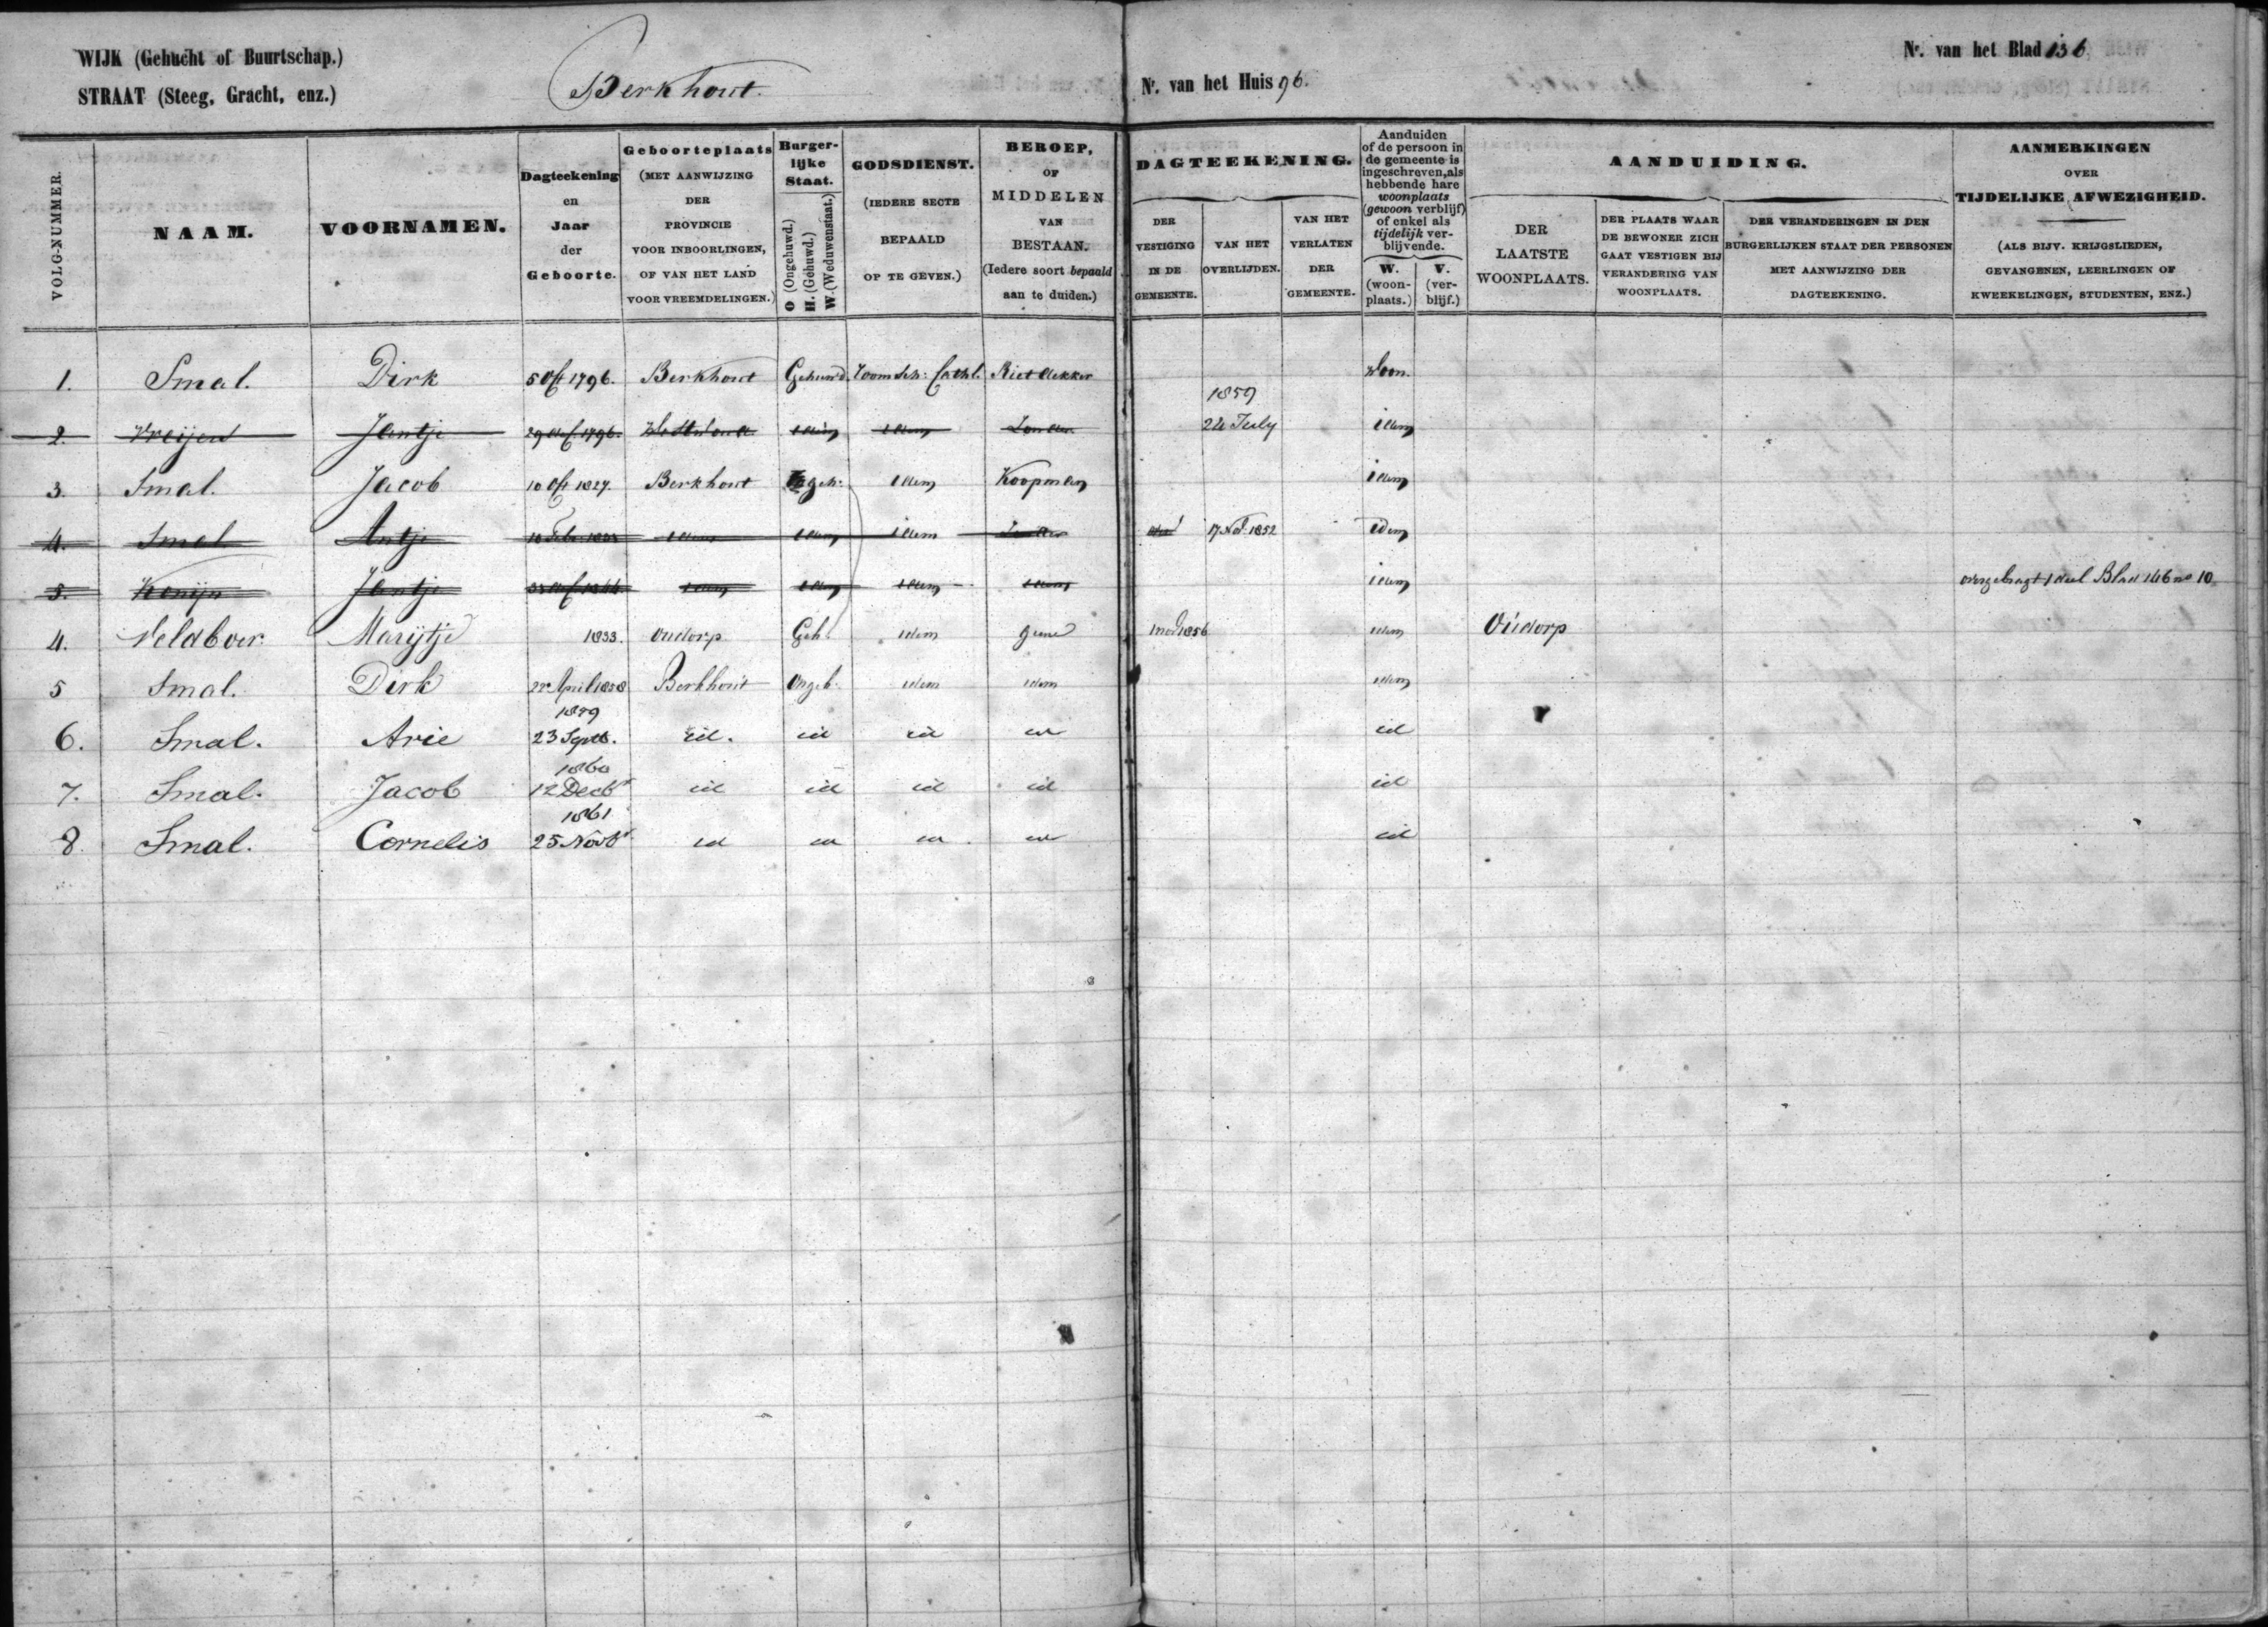 WIJK (Gehucht of Buurtschap.)
STRAAT (Steeg, Gracht, enz.)
Berkhout.
Nr. van het Huis 96.
Nr. van het Blad 136
VOLG-NUMMER.
NAAM.
VOORNAMEN.
Dagteekening en Jaar der Geboorte.
Geboorteplaats (MET AANWIJZING DER PROVINCIE VOOR INBOORLINGEN, OF VAN HET LAND VOOR VREEMDELINGEN.)
Burgerlijke Staat. O (Ongehuwd.) H. (Gehuwd.) W. (Weduwenstaat.)
GODSDIENST. (IEDERE SECTE BEPAALD OP TE GEVEN.)
BEROEP, OF MIDDELEN VAN BESTAAN. (Iedere soort bepaald aan te duiden.)
DAGTEEKENING.
DER VESTIGING IN DE GEMEENTE.
VAN HET OVERLIJDEN.
VAN HET VERLATEN DER GEMEENTE.
Aanduiden of de persoon in de gemeente is ingeschreven, als hebbende hare woonplaats (gewoon verblijf) of enkel als tijdelijk verblijvende.
W. (woonplaats.)
V. (verblijf.)
AANDUIDING.
DER LAATSTE WOONPLAATS.
DER PLAATS WAAR DE BEWONER ZICH GAAT VESTIGEN BIJ VERANDERING VAN WOONPLAATS.
DER VERANDERINGEN IN DEN BURGERLIJKEN STAAT DER PERSONEN MET AANWIJZING DER DAGTEEKENING.
AANMERKINGEN OVER TIJDELIJKE AFWEZIGHEID. (ALS BIJV. KRIJGSLIEDEN, GEVANGENEN, LEERLINGEN OF KWEEKELINGEN, STUDENTEN, ENZ.)
1. Smal. Dirk 5 Oct 1796. Berkhout Gehuwd. Roomsch: Cathl. Rietdekker Woon.
2. Jantje 1796. idem idem Zonder 1859 22 July idem
3. Smal. Jacob 10 Oct 1827. Berkhout Ongeh: idem Koopman idem
4. Smal Antje idem idem idem Zonder 17 Nov 1852 idem
5. Konijn Jantje idem idem idem idem idem overgebragt 1 deel Blad 146 no 10
4. Veldboer Marijtje 1833. Oudorp Geh. idem geene 1856 idem Oudorp
5 Smal. Dirk 22 April 1858 Berkhout Ongeh. idem idem idem
6. Smal. Arie 1859 23 Septb. id. id id id id
7. Smal. Jacob 1860 12 Decbr id id id id id
8. Smal. Cornelis 1861 25 Novbr id id id id id